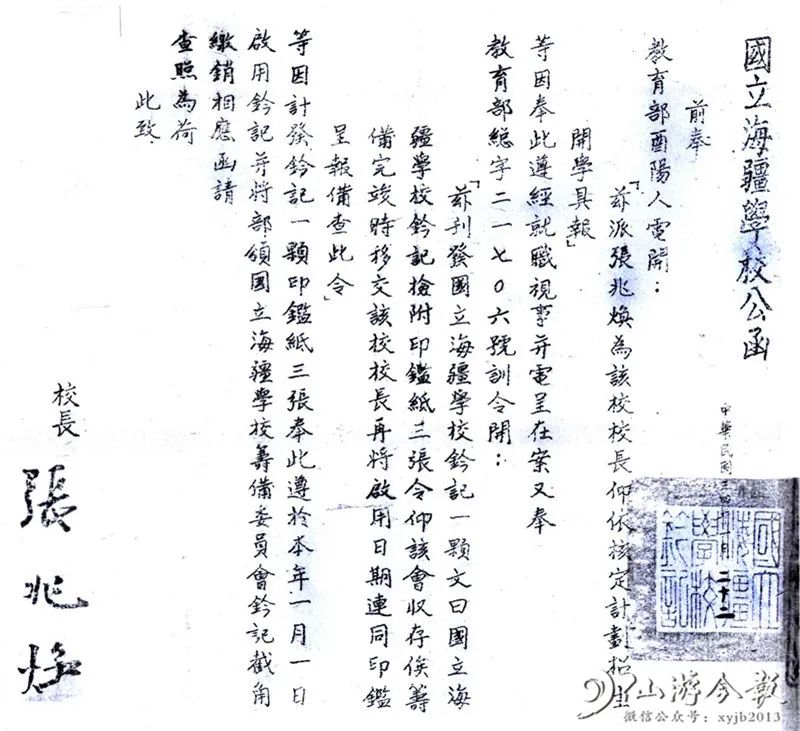 國立海疆學校公函
中華民國三四年一月二十二
前奉
教育部酉陽人電開：
「茲派張兆煥為該校校長仰依核定計劃招生
開學具報」
等因奉此遵經就職視事并電呈在案又奉
教育部總字二一七〇六號訓令開：
「茲刊發國立海疆學校鈐記一顆文曰國立海
疆學校鈐記檢附印鑑紙三張令仰該會收存俟籌
備完竣時移交該校校長再將啟用日期連同印鑑
呈報備查此令」
等因計發鈐記一顆印鑑紙三張奉此遵於本年一月一日
啟用鈐記并將部頒國立海疆學校籌備委員會鈐記截角
繳銷相應函請
查照為荷
此致
校長
張兆煥
國立海疆學校鈐記
山游今報
微信公众号：xyjb2013